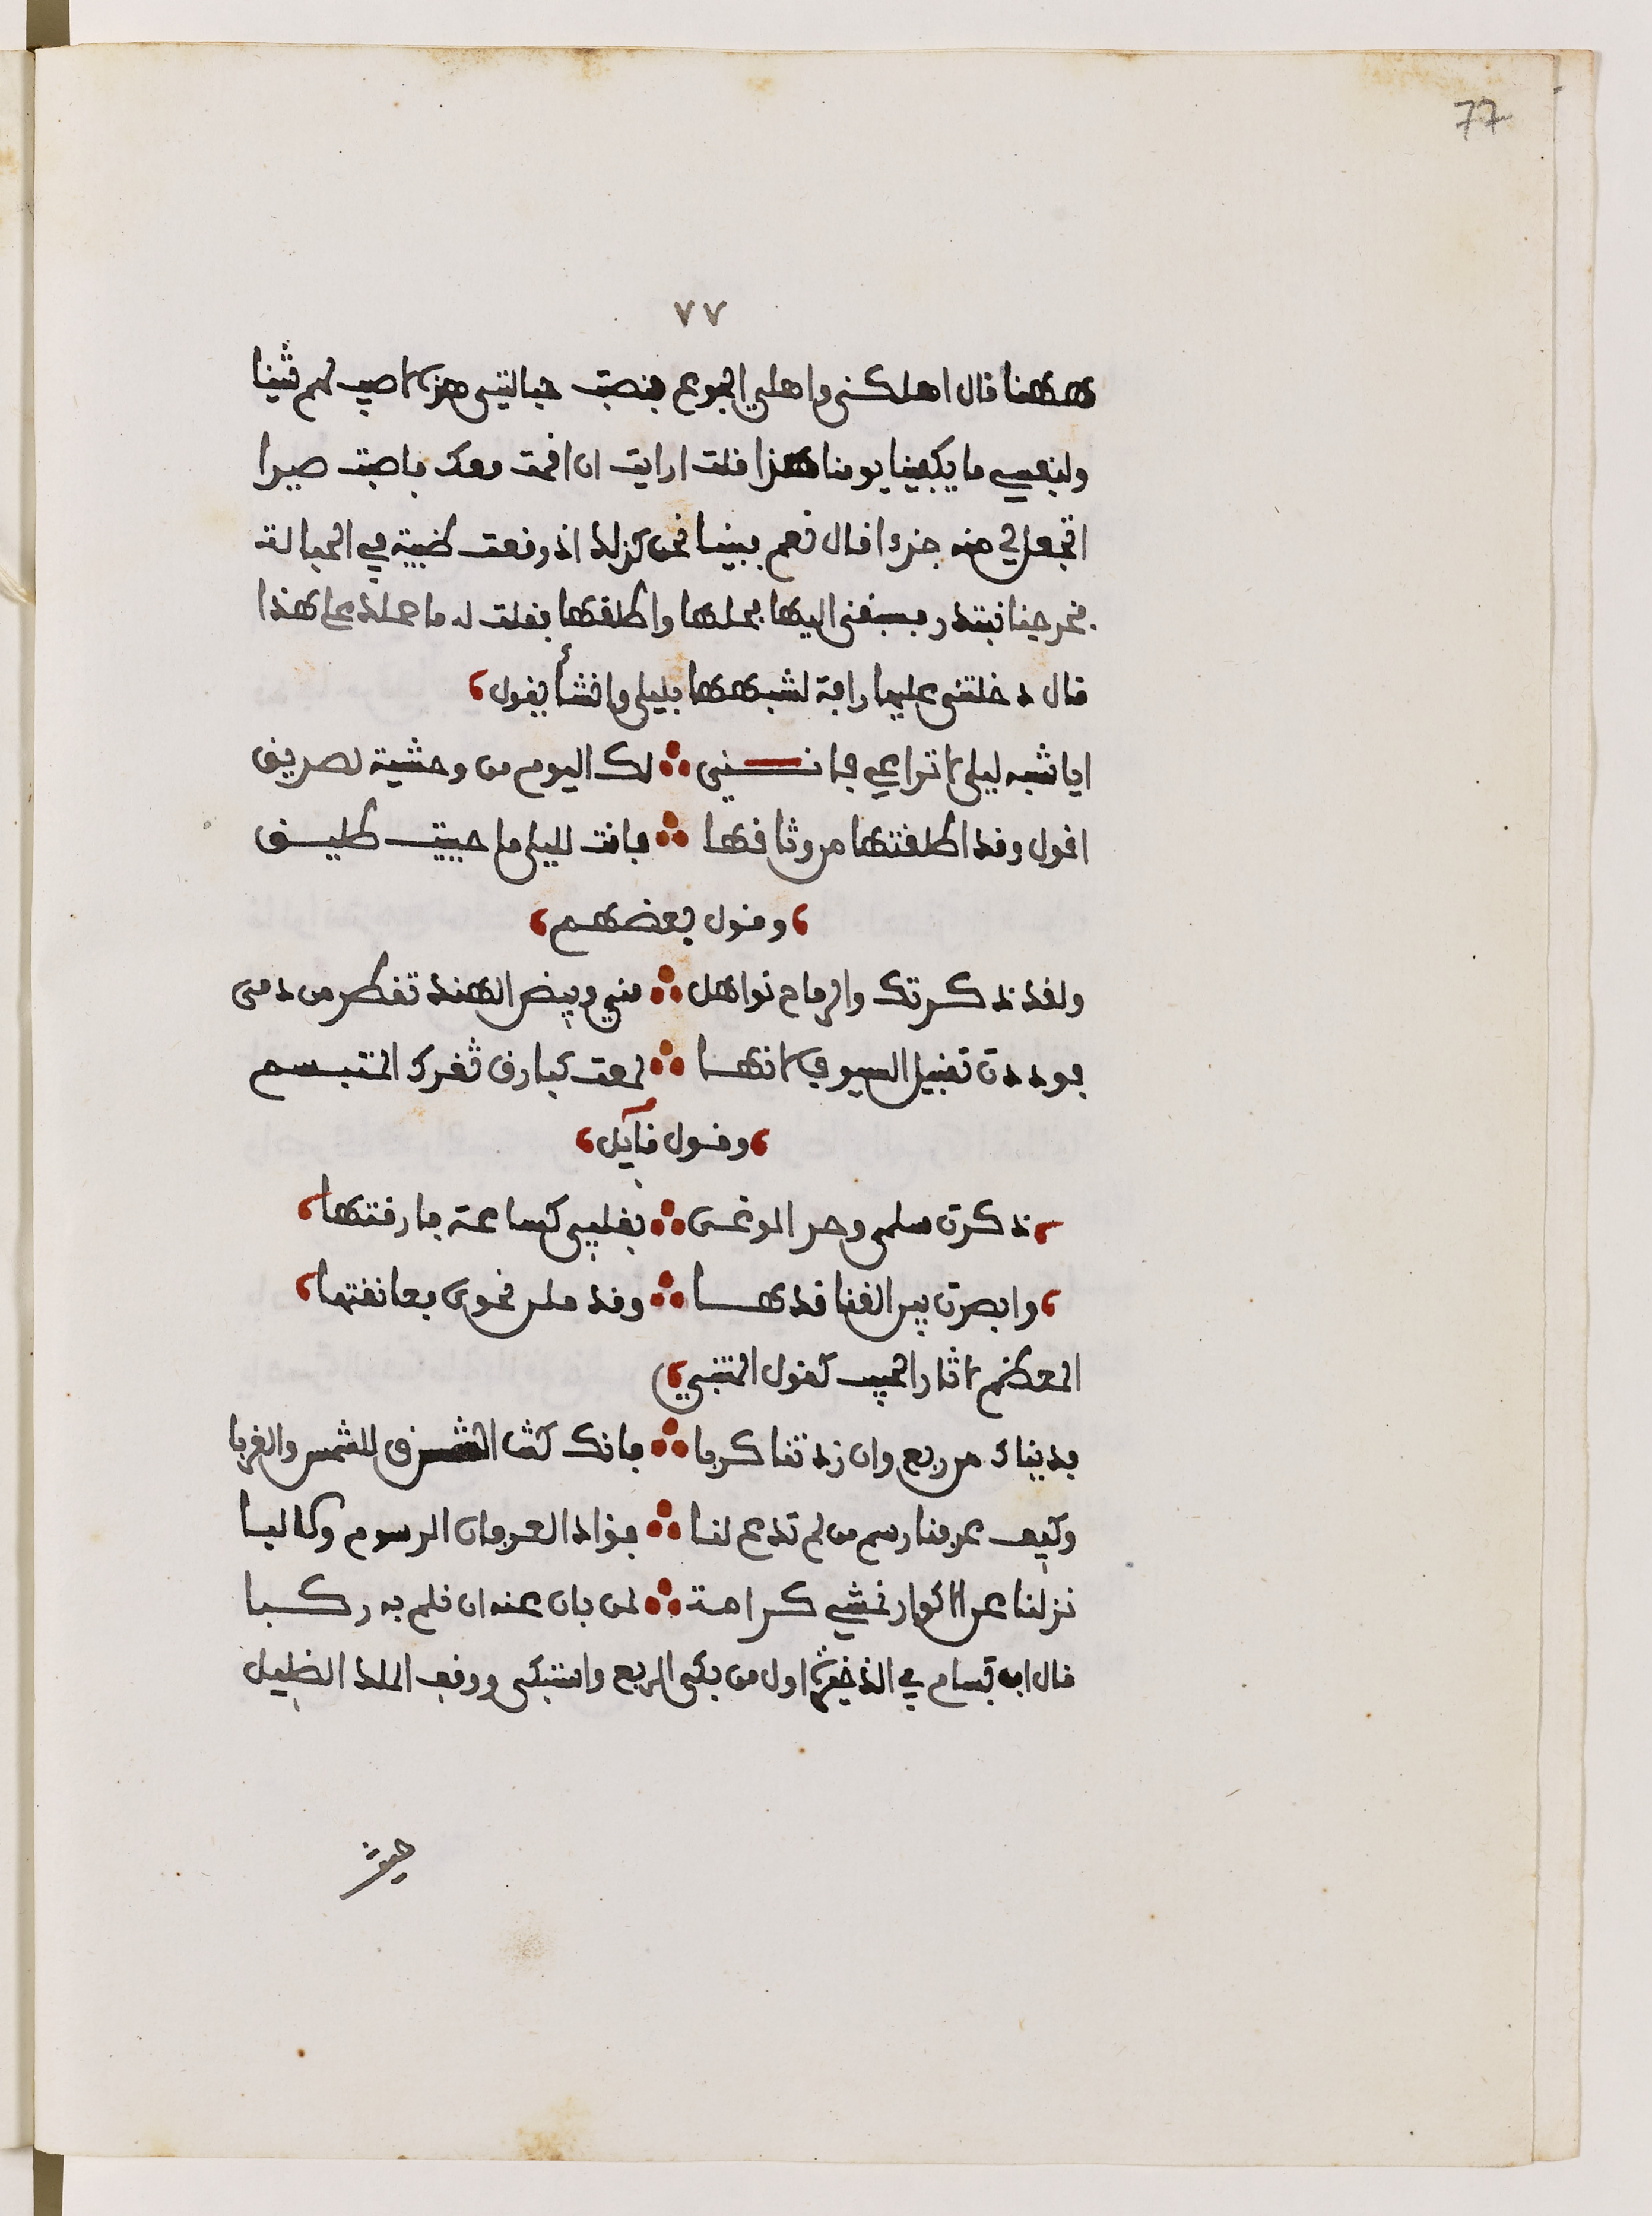 77
٧٧
هاهنا قال اهلكني واهلي الجوع فنصبت حبالتي هذه لاصيب لهم شيئا
ولنفسي ما يكفينا يومنا هذا قلت ارايت ان اقمت معك فاصبت صيدا
اتجعل لي منه جزءا قال نعم فبينا نحن كذلك اذ وقعت ظبية في الحبالة
فخرجنا نبتدر فسبقني اليها فحلها واطلقها فقلت له ما حملك على هذا
قال دخلتني عليها رافة لشبهها بليلى وانشأ يقول
ايا شبه ليلى لا تراعي فانني لك اليوم من وحشية لصديق
اقول وقد اطلقتها من وثاقها فانت لليلى ما حييت طليق
وقول بعضهم
ولقد ذكرتك والرماح نواهل مني وبيض الهند تقطر من دمي
فوددت تقبيل السيوف لانها لمعت كبارق ثغرك المتبسم
وقول قآيل
ذكرت سلمى وحر الوغى بقلبي كساعة فارقتها
وابصرت بين القنا قدها وقد ملن نحوي فعانقتها
المعظم لاثار الحبيب كقول المتنبي
فديناك من ربع وان زدتنا كربا فانك كنت الشرق للشمس والغربا
وكيف عرفنا رسم من لم تدع لنا فؤادا لعرفان الرسوم ولا لبا
نزلنا عن الاكوار نمشي كرامة لمن بان عنه ان نلم به ركبا
قال ابن بسام في الذخيرة اول من بكى الربع واستبكى ووقف الملك الضليل